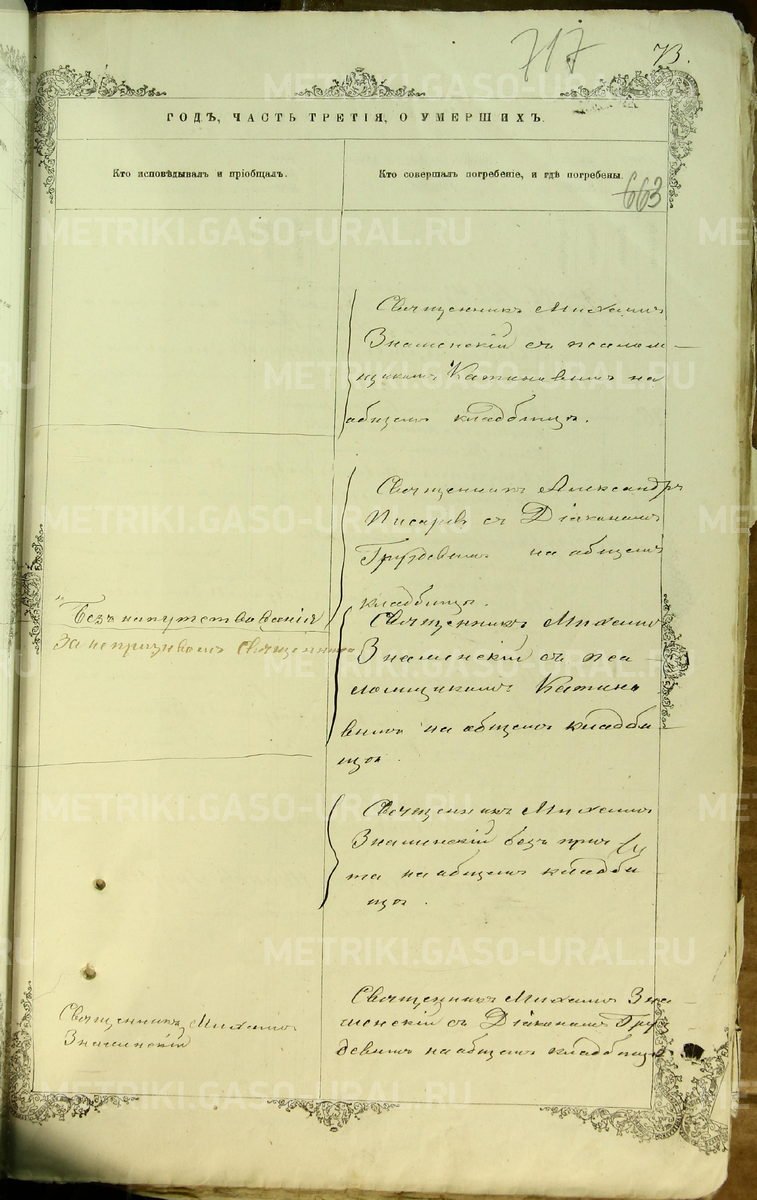 717
73.
ГОДЪ, ЧАСТЬ ТРЕТІЯ, О УМЕРШИХЪ.
Кто исповѣдывалъ и пріобщалъ.
Кто совершалъ погребеніе, и гдѣ погребены.
663
METRIKI.GASO-URAL.RU
Священникъ Михаилъ
Знаменскій съ псалом-
щикомъ Катаневымъ на
общемъ кладбищѣ.
Священникъ Александръ
Писаревъ съ Діакономъ
на общемъ
кладбищѣ.
Безъ напутствованія
За непризывомъ Священника
Священникъ Михаилъ
Знаменскій съ пса-
ломщикомъ Катане
вымъ на общемъ кладби
щѣ.
Священникъ Михаилъ
Знаменскій безъ прич
та на общемъ кладби
щѣ.
Священникъ Михаилъ
Знаменскій
Священникъ Михаилъ Зна-
менскій съ Діакономъ Гру
девымъ на общемъ кладбищѣ